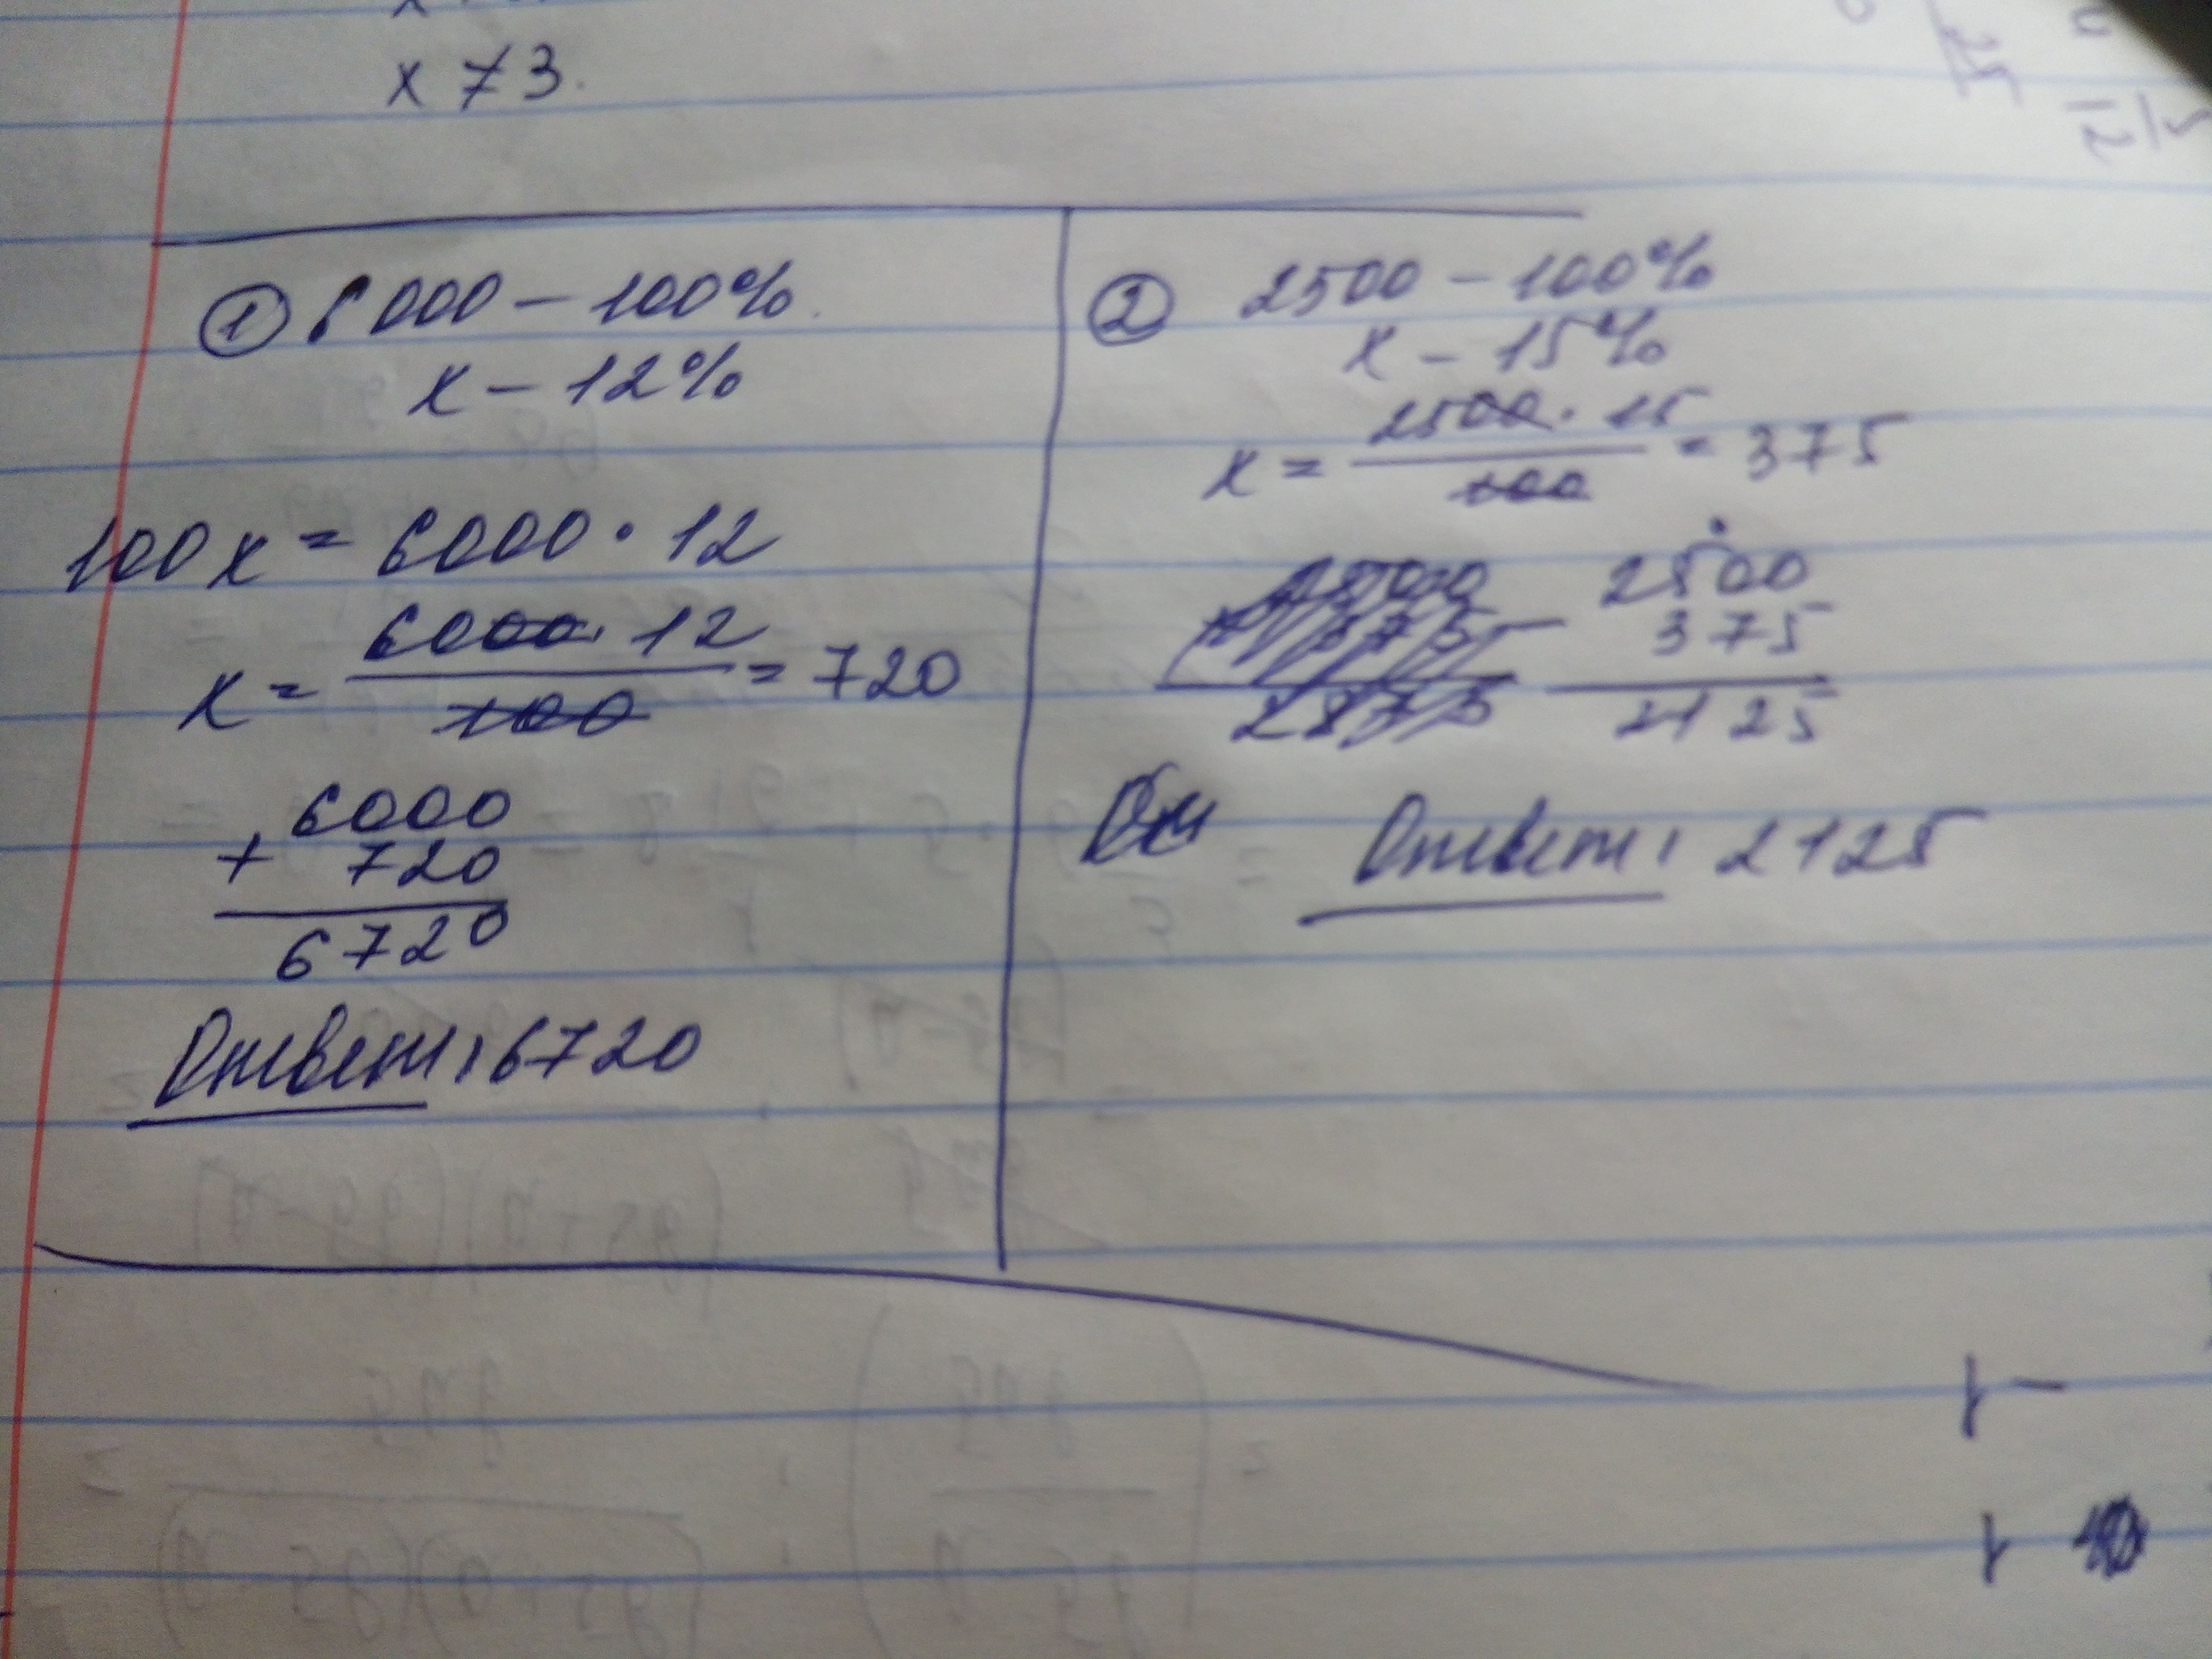 x ≠ 3.
① 6000 – 100%
x – 12%
100x = 6000 · 12
x = 6000 · 12 / 100 = 720
6000
+ 720
6720
Ответ: 6720
② 2500 – 100%
x – 15%
x = 2500 · 15 / 100 = 375
2500
375
2875
– 2500
375
2125
Ответ: 2125
25
5
12